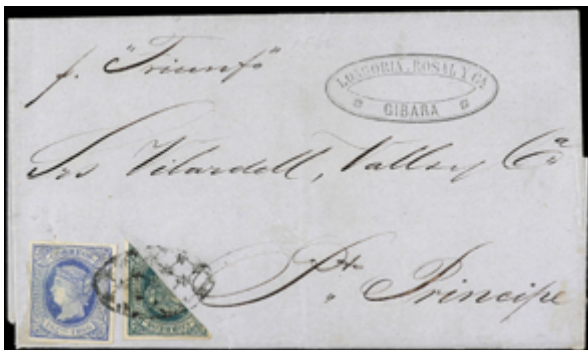 p. "Triunfo"
LONGORIA, ROSAL Y CA
GIBARA
Srs Vilardell, Valls y Cª
Pto Principe
CORREOS